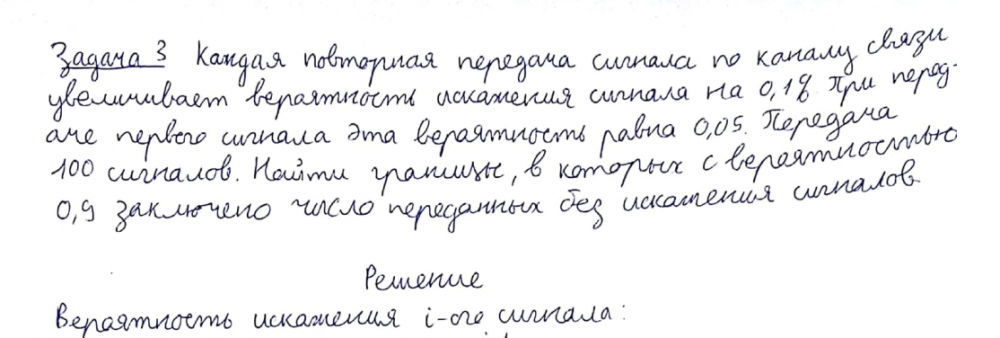 Задача 3 Каждая повторная передача сигнала по каналу связи
увеличивает вероятность искажения сигнала на 0,1%. При перед-
аче первого сигнала эта вероятность равна 0,05. Передача
100 сигналов. Найти границы, в которых с вероятностью
0,9 заключено число переданных без искажения сигналов.
Решение
Вероятность искажения i-ого сигнала: